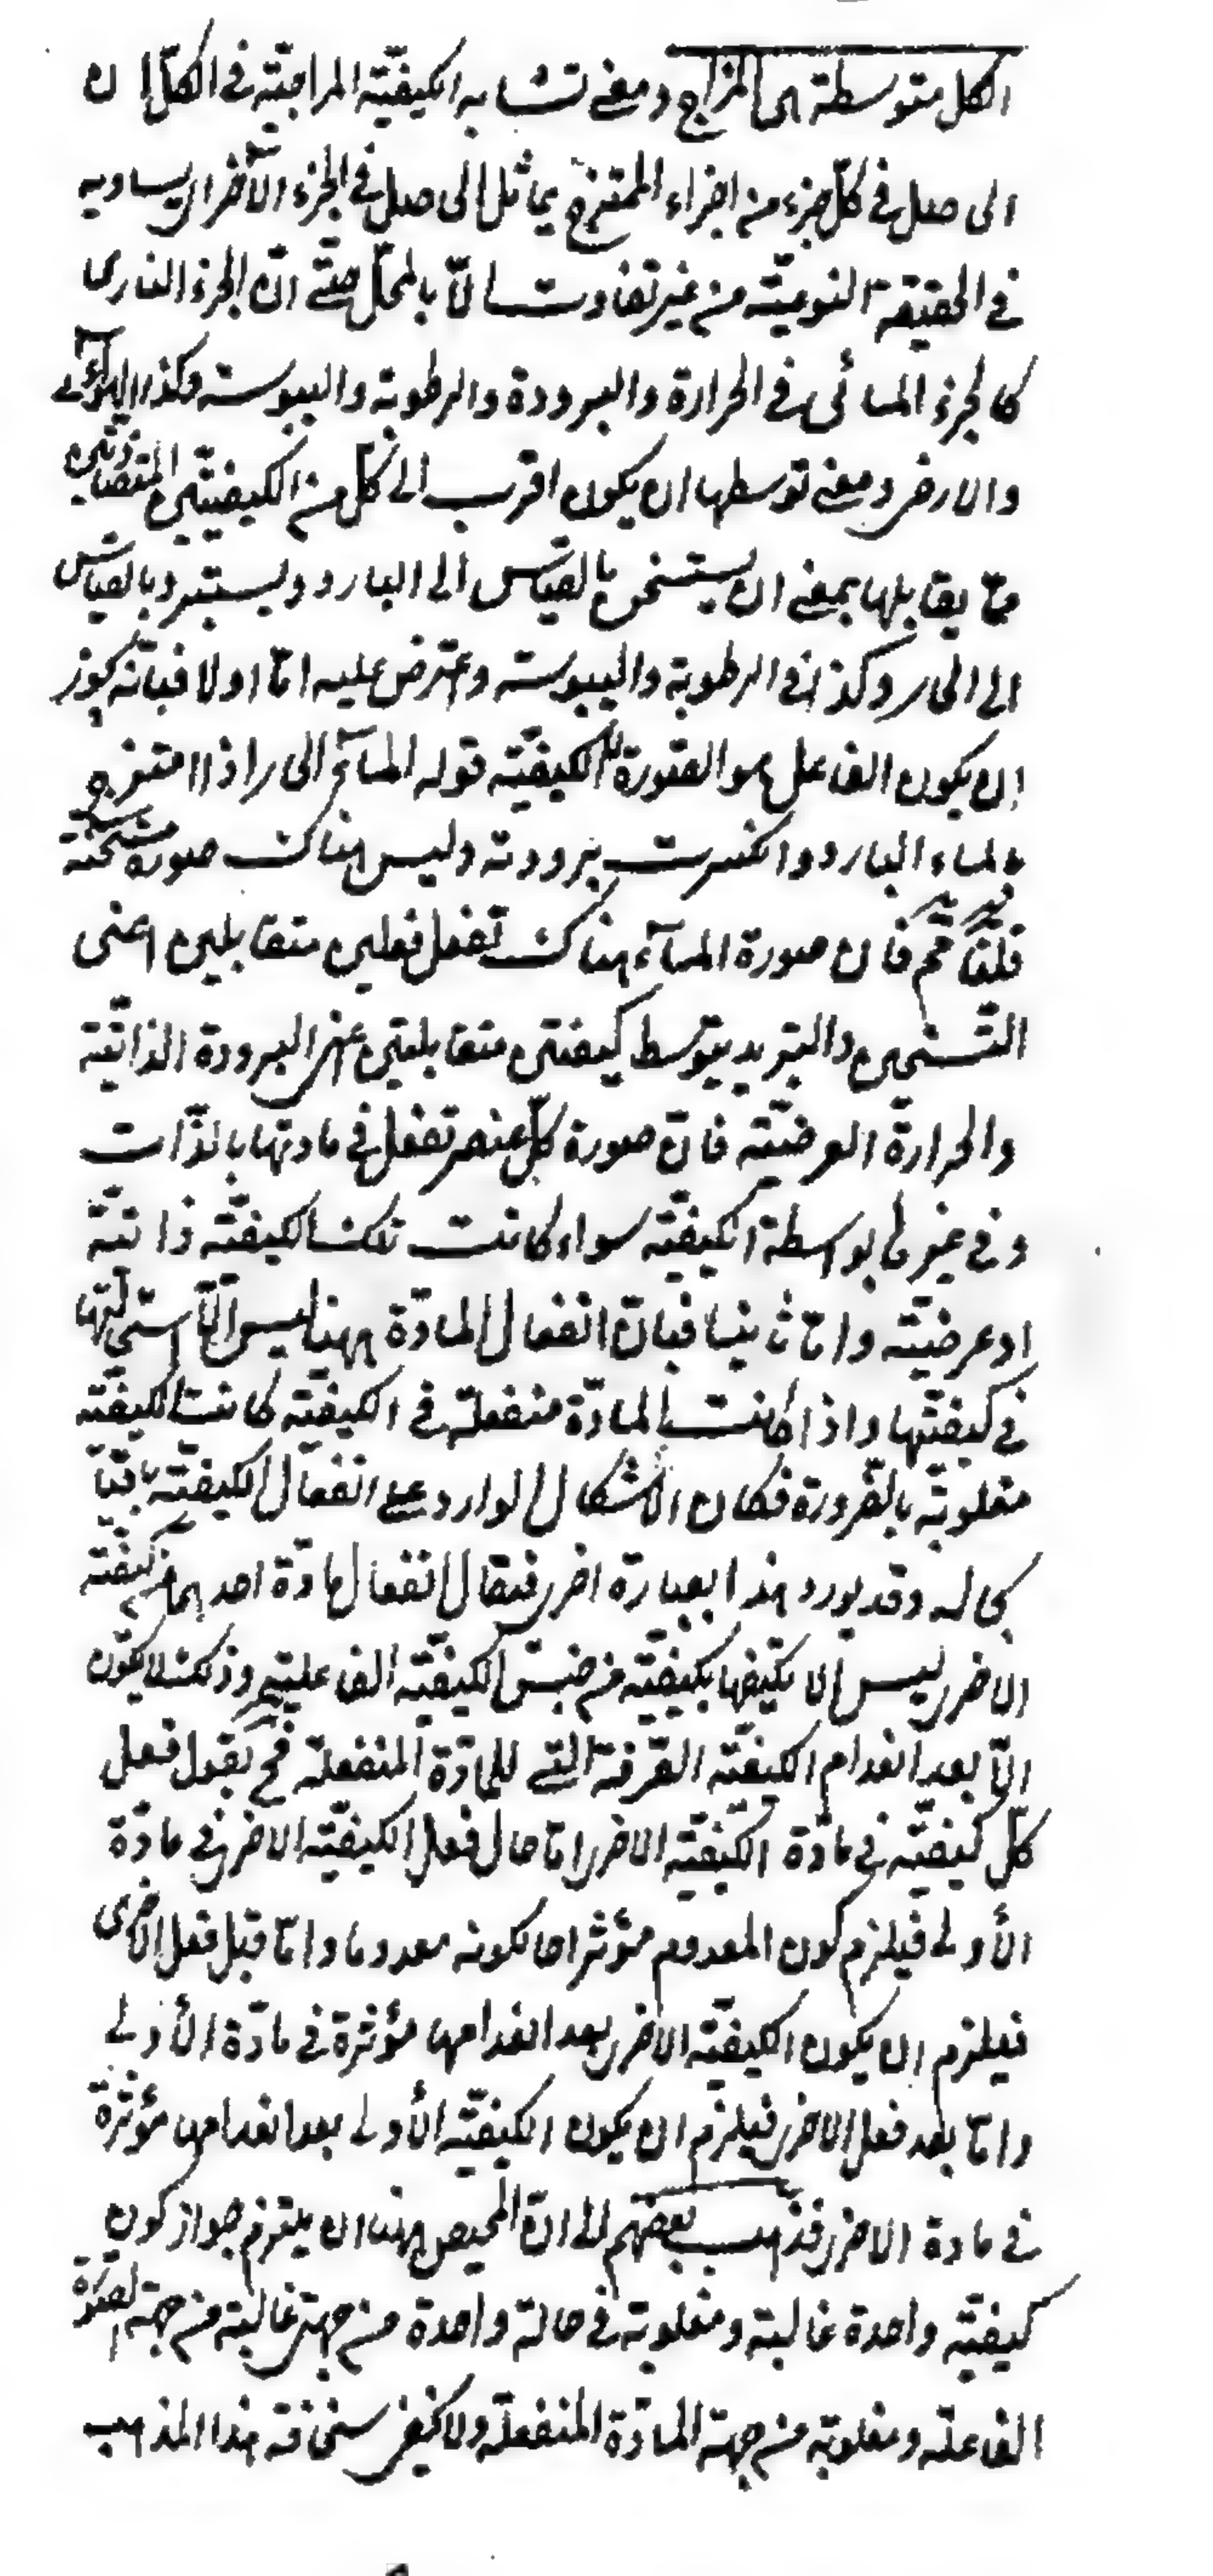 الكل متوسطة هى المزاج ومعنى تشابه الكيفيّة المزاجيّة فى الكلّ ان
الحاصل فى كلّ جزء من اجزاء الممتزج يماثل الحاصل فى الجزء الآخر اى يساويه
فى الحقيقة النوعيّة من غير تفاوت الّا بالمحلّ حتّى انّ الجزء النارى
كالجزء المائى فى الحرارة والبرودة والرطوبة واليبوسة وكذا الهوائى
والارضى ومعنى توسطها ان يكون اقرب الى كلّ من الكيفيّتين المتضادّتين
ممّا يقابلها بمعنى ان يستسخن بالقياس الى البارد ويستبرد بالقياس
الى الحار وكذا فى الرطوبة واليبوسة واعترض عليه امّا اولا فبانّه يجوز
ان يكون الفاعل هو الصّورة لا الكيفيّة قوله المآء الحار اذا امتزج
بالماء البارد وانكسرت برودته وليس هناك صورة مسخّنة
قلنا ممّ فان صورة المآء هناك تفعل فعلين متقابلين اعنى
التّسخين والتبريد بتوسط كيفتين متقابلتين اعنى البرودة الذاتيّة
والحرارة العرضيّة فانّ صورة كلّ عنصر تفعل فى مادتها بالذّات
وفى غيرها بواسطة الكيفيّة سواء كانت تلك الكيفيّة ذاتيّة
او عرضيّة وامّا ثانيا فبانّ انفعال المادّة ههنا ليس الّا استحالتها
فى كيفيّتها واذا كانت المادّة منفعلة فى الكيفيّة كانت الكيفيّة
مغلوبة بالضّرورة فكان الاشكال الوارد على انفعال الكيفيّة باقيا
بحاله وقد يورد هذا بعبارة اخرى فيقال انفعال مادّة احدهما من كيفيّة
الاخرى ليس الا تكيّفها بكيفيّة من جنس الكيفيّة الفاعليّة وذلك لا يكون
الّا بعد انعدام الكيفيّة الصّرفة الّتى للمادّة المنفعلة فح نقول فعل
كلّ كيفيّة فى مادّة الكيفيّة الاخرى امّا حال فعل الكيفيّة الاخرى فى مادّة
الأولى فيلزم كون المعدوم مؤثرا حال كونه معدوما وامّا قبل فعل الاخرى
فيلزم ان يكون الكيفيّة الاخرى بعد انعدامها مؤثرة فى مادّة الأولى
وامّا بعد فعل الاخرى فيلزم ان يكون الكيفيّة الأولى بعد انعدامها مؤثرة
فى مادة الاخرى فذهب بعضهم الى انّ المحيص ههنا ان يلتزم جواز كون
كيفيّة واحدة غالبة ومغلوبة فى حالة واحدة من جهتى غالبة من جهة الصّورة
الفاعلة ومغلوبة من جهة المادّة المنفعلة ولا يخفى سخافة هذا المذهب